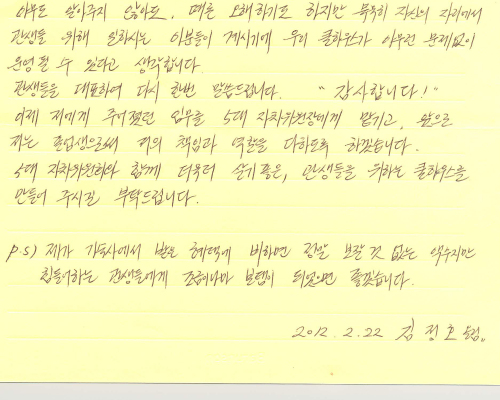 아무도 알아주지 않아도, 때론 오해하기도 하지만 묵묵히 자신의 자리에서
관생들을 위해 일하시는 이분들이 계시기에 우리 클하우스가 아무런 문제없이
운영될 수 있다고 생각합니다.
관생들을 대표하여 다시 한번 말씀드립니다. "감사합니다!"
이제 저에게 주어졌던 임무를 5대 자치위원장에게 맡기고, 앞으로
저는 졸업생으로써 저의 책임과 역할을 다하도록 하겠습니다.
5대 자치위원회와 함께 더욱더 살기좋은, 관생들을 위하는 클하우스를
만들어 주시길 부탁드립니다.
PS) 제가 기숙사에서 받은 혜택에 비하면 정말 보잘 것 없는 액수지만
힘들어하는 관생들에게 조금이나마 보탬이 되었으면 좋겠습니다.
2012. 2. 22 김정호 드림.